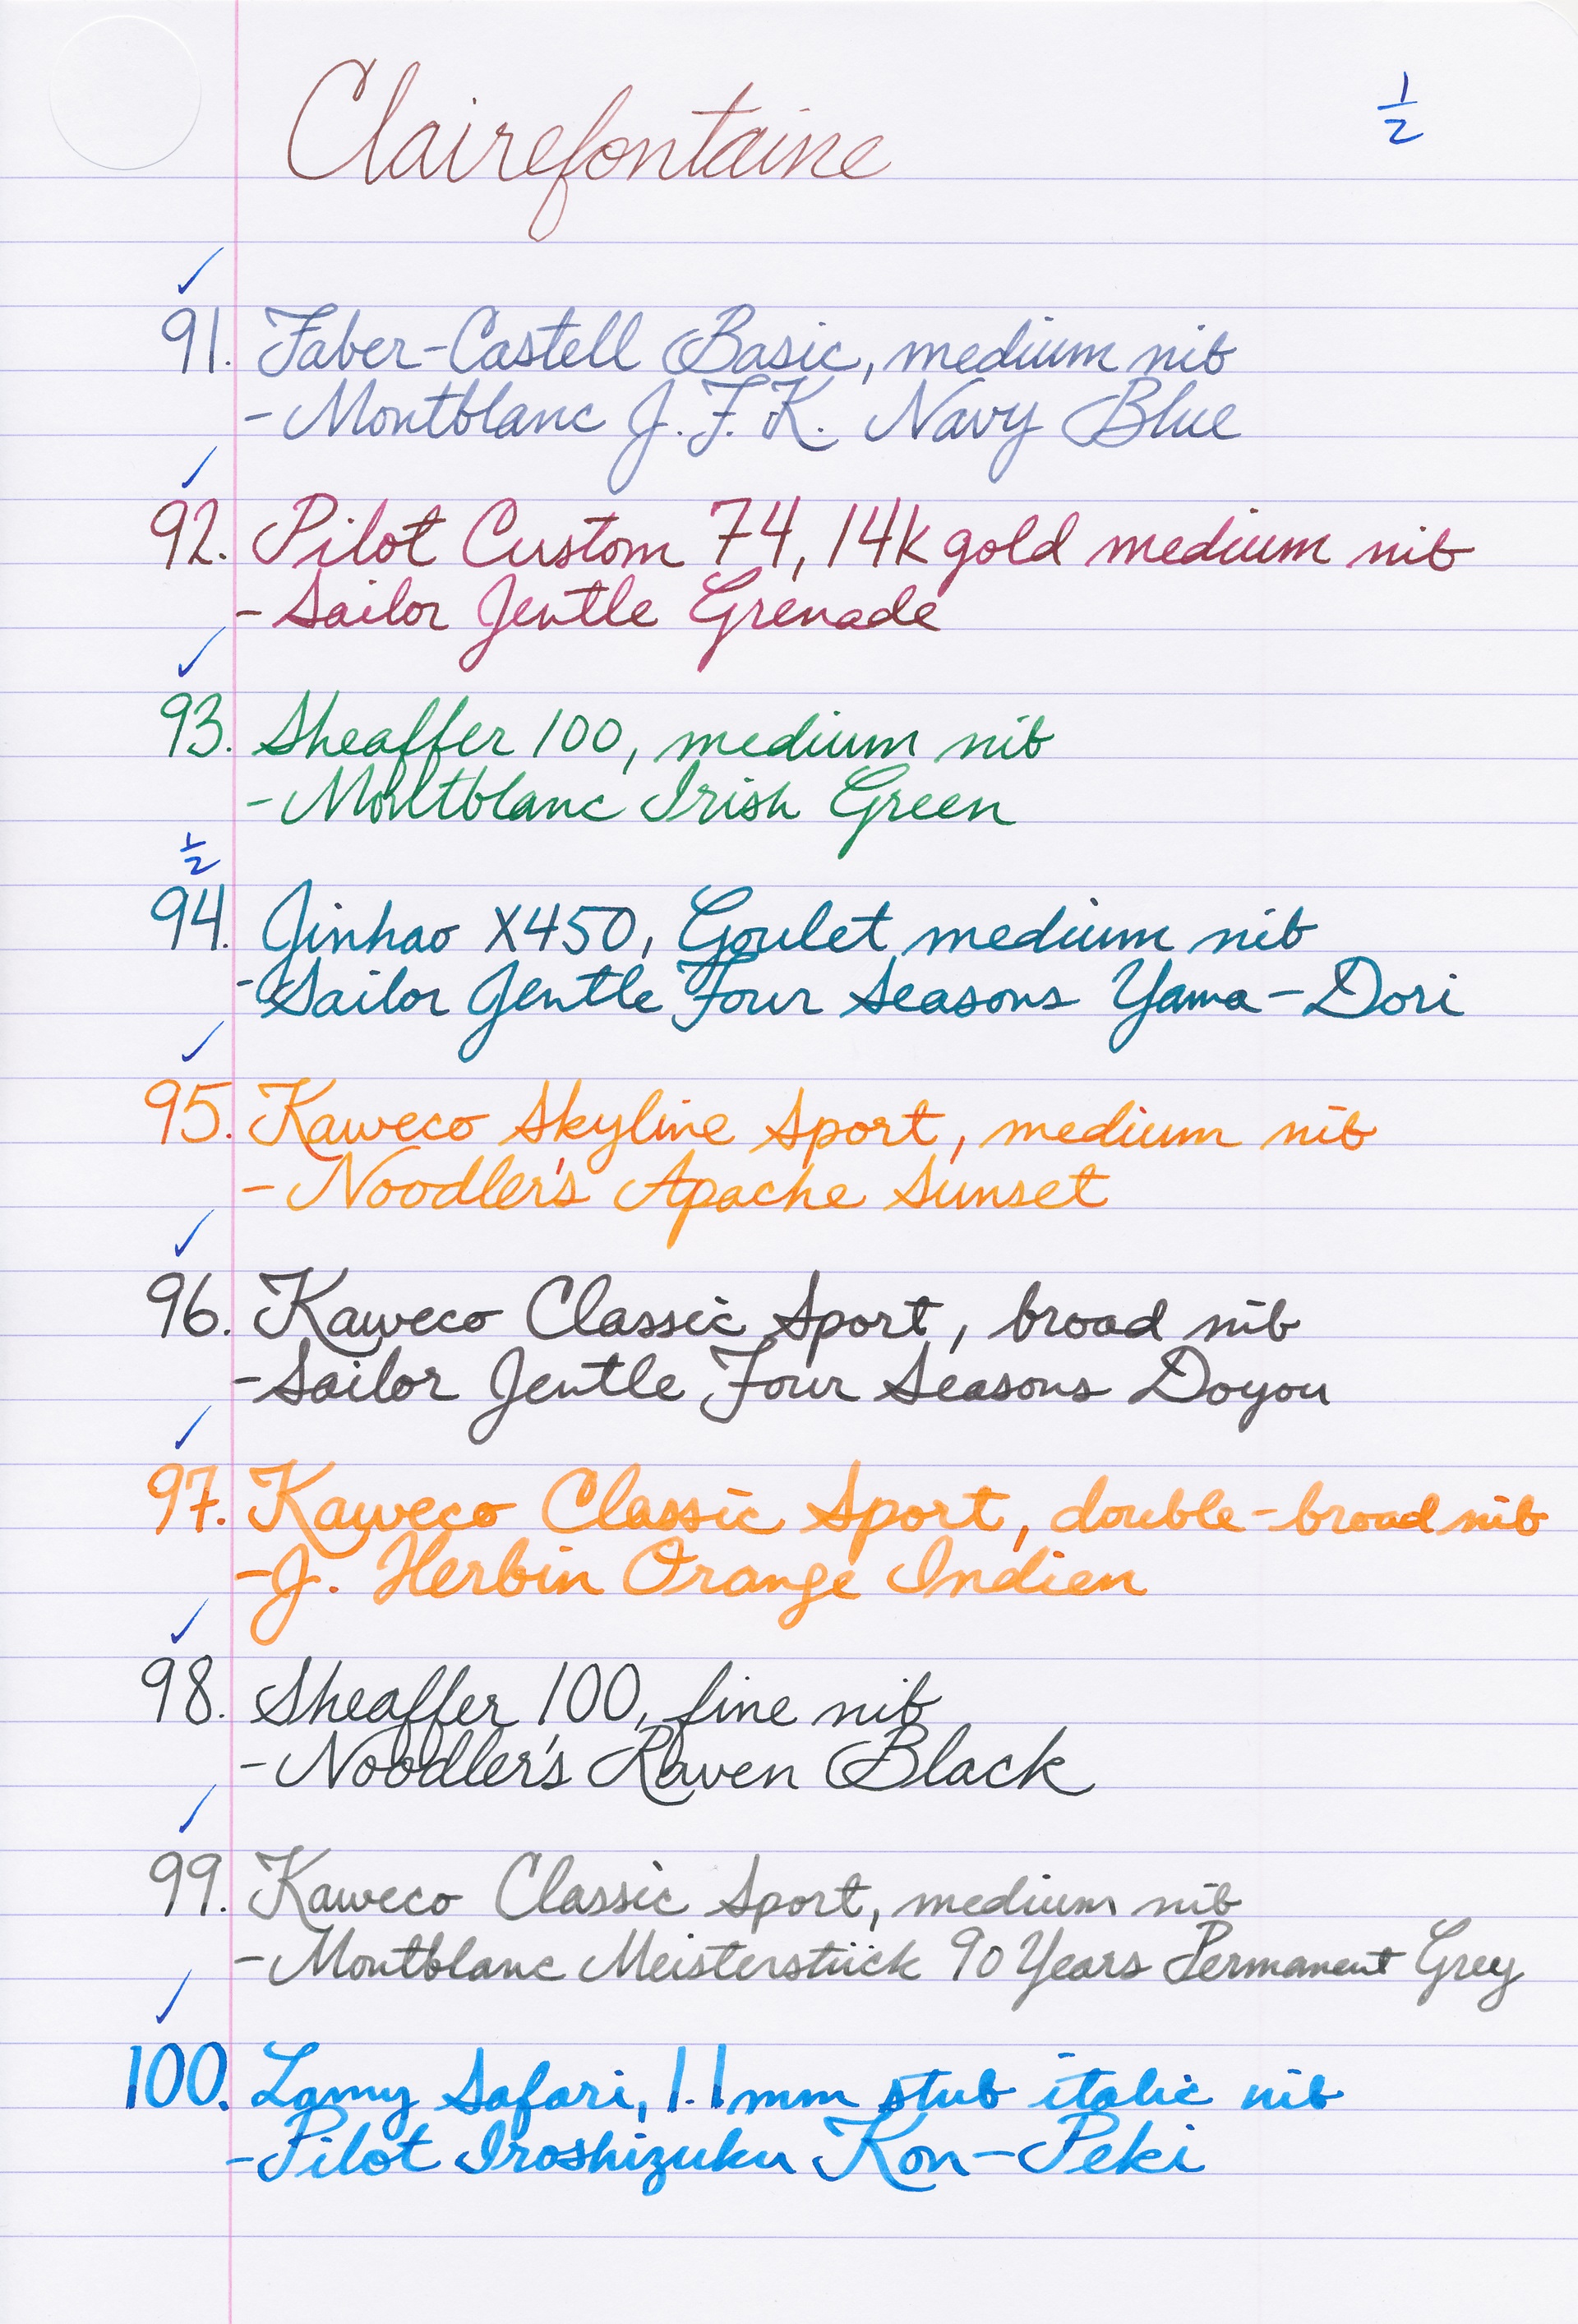 Clairefontaine
1/2
✓
91. Faber-Castell Basic, medium nib
- Montblanc J.F.K. Navy Blue
✓
92. Pilot Custom 74, 14k gold medium nib
- Sailor Jentle Grenade
✓
93. Sheaffer 100, medium nib
- Montblanc Irish Green
1/2
94. Jinhao X450, Goulet medium nib
- Sailor Jentle Four Seasons Yama-Dori
✓
95. Kaweco Skyline Sport, medium nib
- Noodler's Apache Sunset
✓
96. Kaweco Classic Sport, broad nib
- Sailor Jentle Four Seasons Doyou
✓
97. Kaweco Classic Sport, double-broad nib
- J. Herbin Orange Indien
✓
98. Sheaffer 100, fine nib
- Noodler's Raven Black
✓
99. Kaweco Classic Sport, medium nib
- Montblanc Meisterstück 90 Years Permanent Grey
✓
100. Lamy Safari, 1.1mm stub italic nib
- Pilot Iroshizuku Kon-Peki